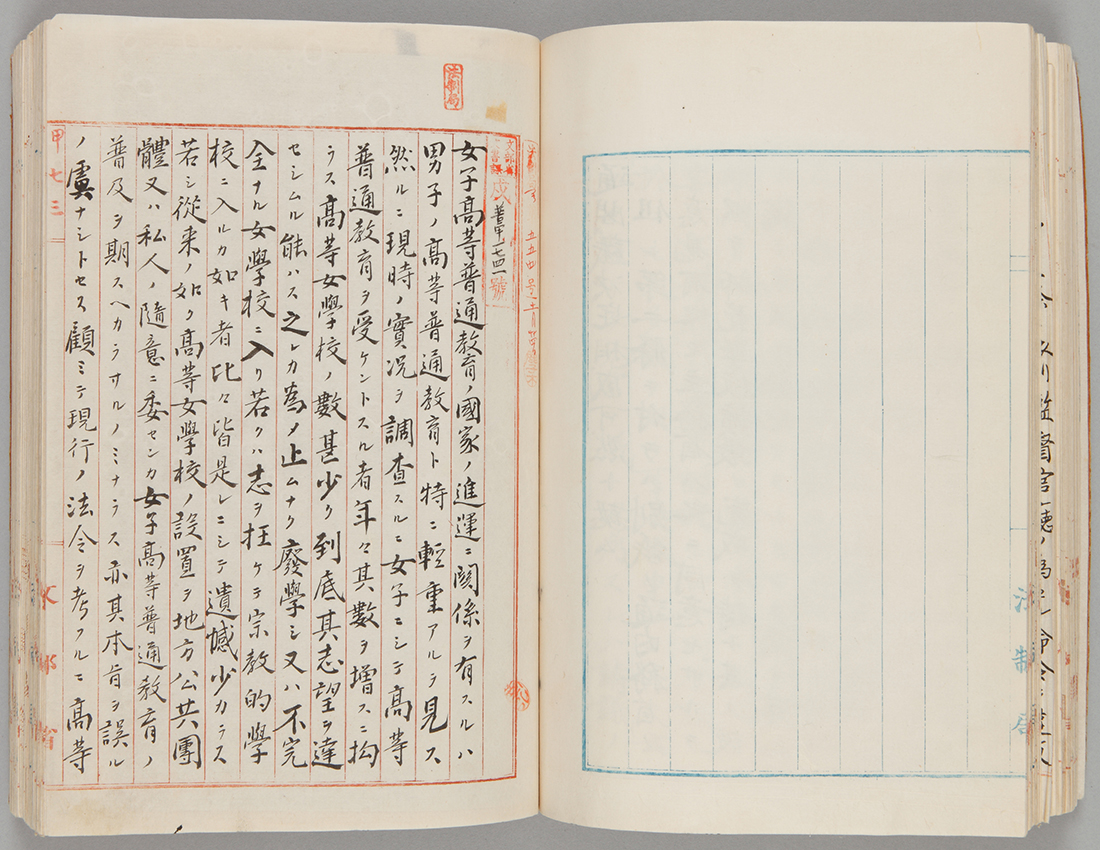 法制局
女子高等普通教育ノ國家ノ進運ニ關係ヲ有スルハ
男子ノ高等普通教育ト特ニ輕重アルヲ見ス
然ルニ現時ノ實况ヲ調査スルニ女子ニシテ高等
普通教育ヲ受ケントスル者年々其數ヲ增スニ拘
ラス高等女學校ノ數甚少ク到底其志望ヲ達
セシムル能ハス之レカ為メ止ムナク廢學シ又ハ不完
全ナル女學校ニ入リ若クハ志ヲ抂ケテ宗教的學
校ニ入ルカ如キ者比々皆是レニシテ遺憾少カラス
若シ從来ノ如ク高等女學校ノ設置ヲ地方公共團
體又ハ私人ノ隨意ニ委センカ女子高等普通教育ノ
普及ヲ期スヘカラサルノミナラス亦其本旨ヲ誤ル
ノ虞ナシトセス顧ミテ現行ノ法令ヲ考フルニ高等
甲七三
文部省
法制局